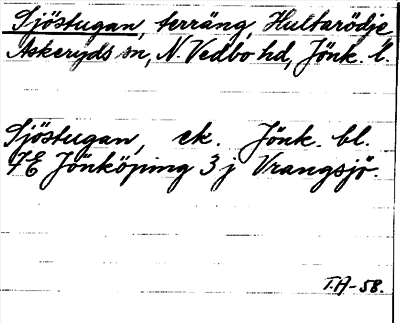 Sjöstugan, terräng, Hultarödje
Askeryds sn, N. Vedbo hd, Jönk. l.
Sjöstugan, ek. Jönk. bl.
7E Jönköping 3 j Vrangsjö.
T.A-58.